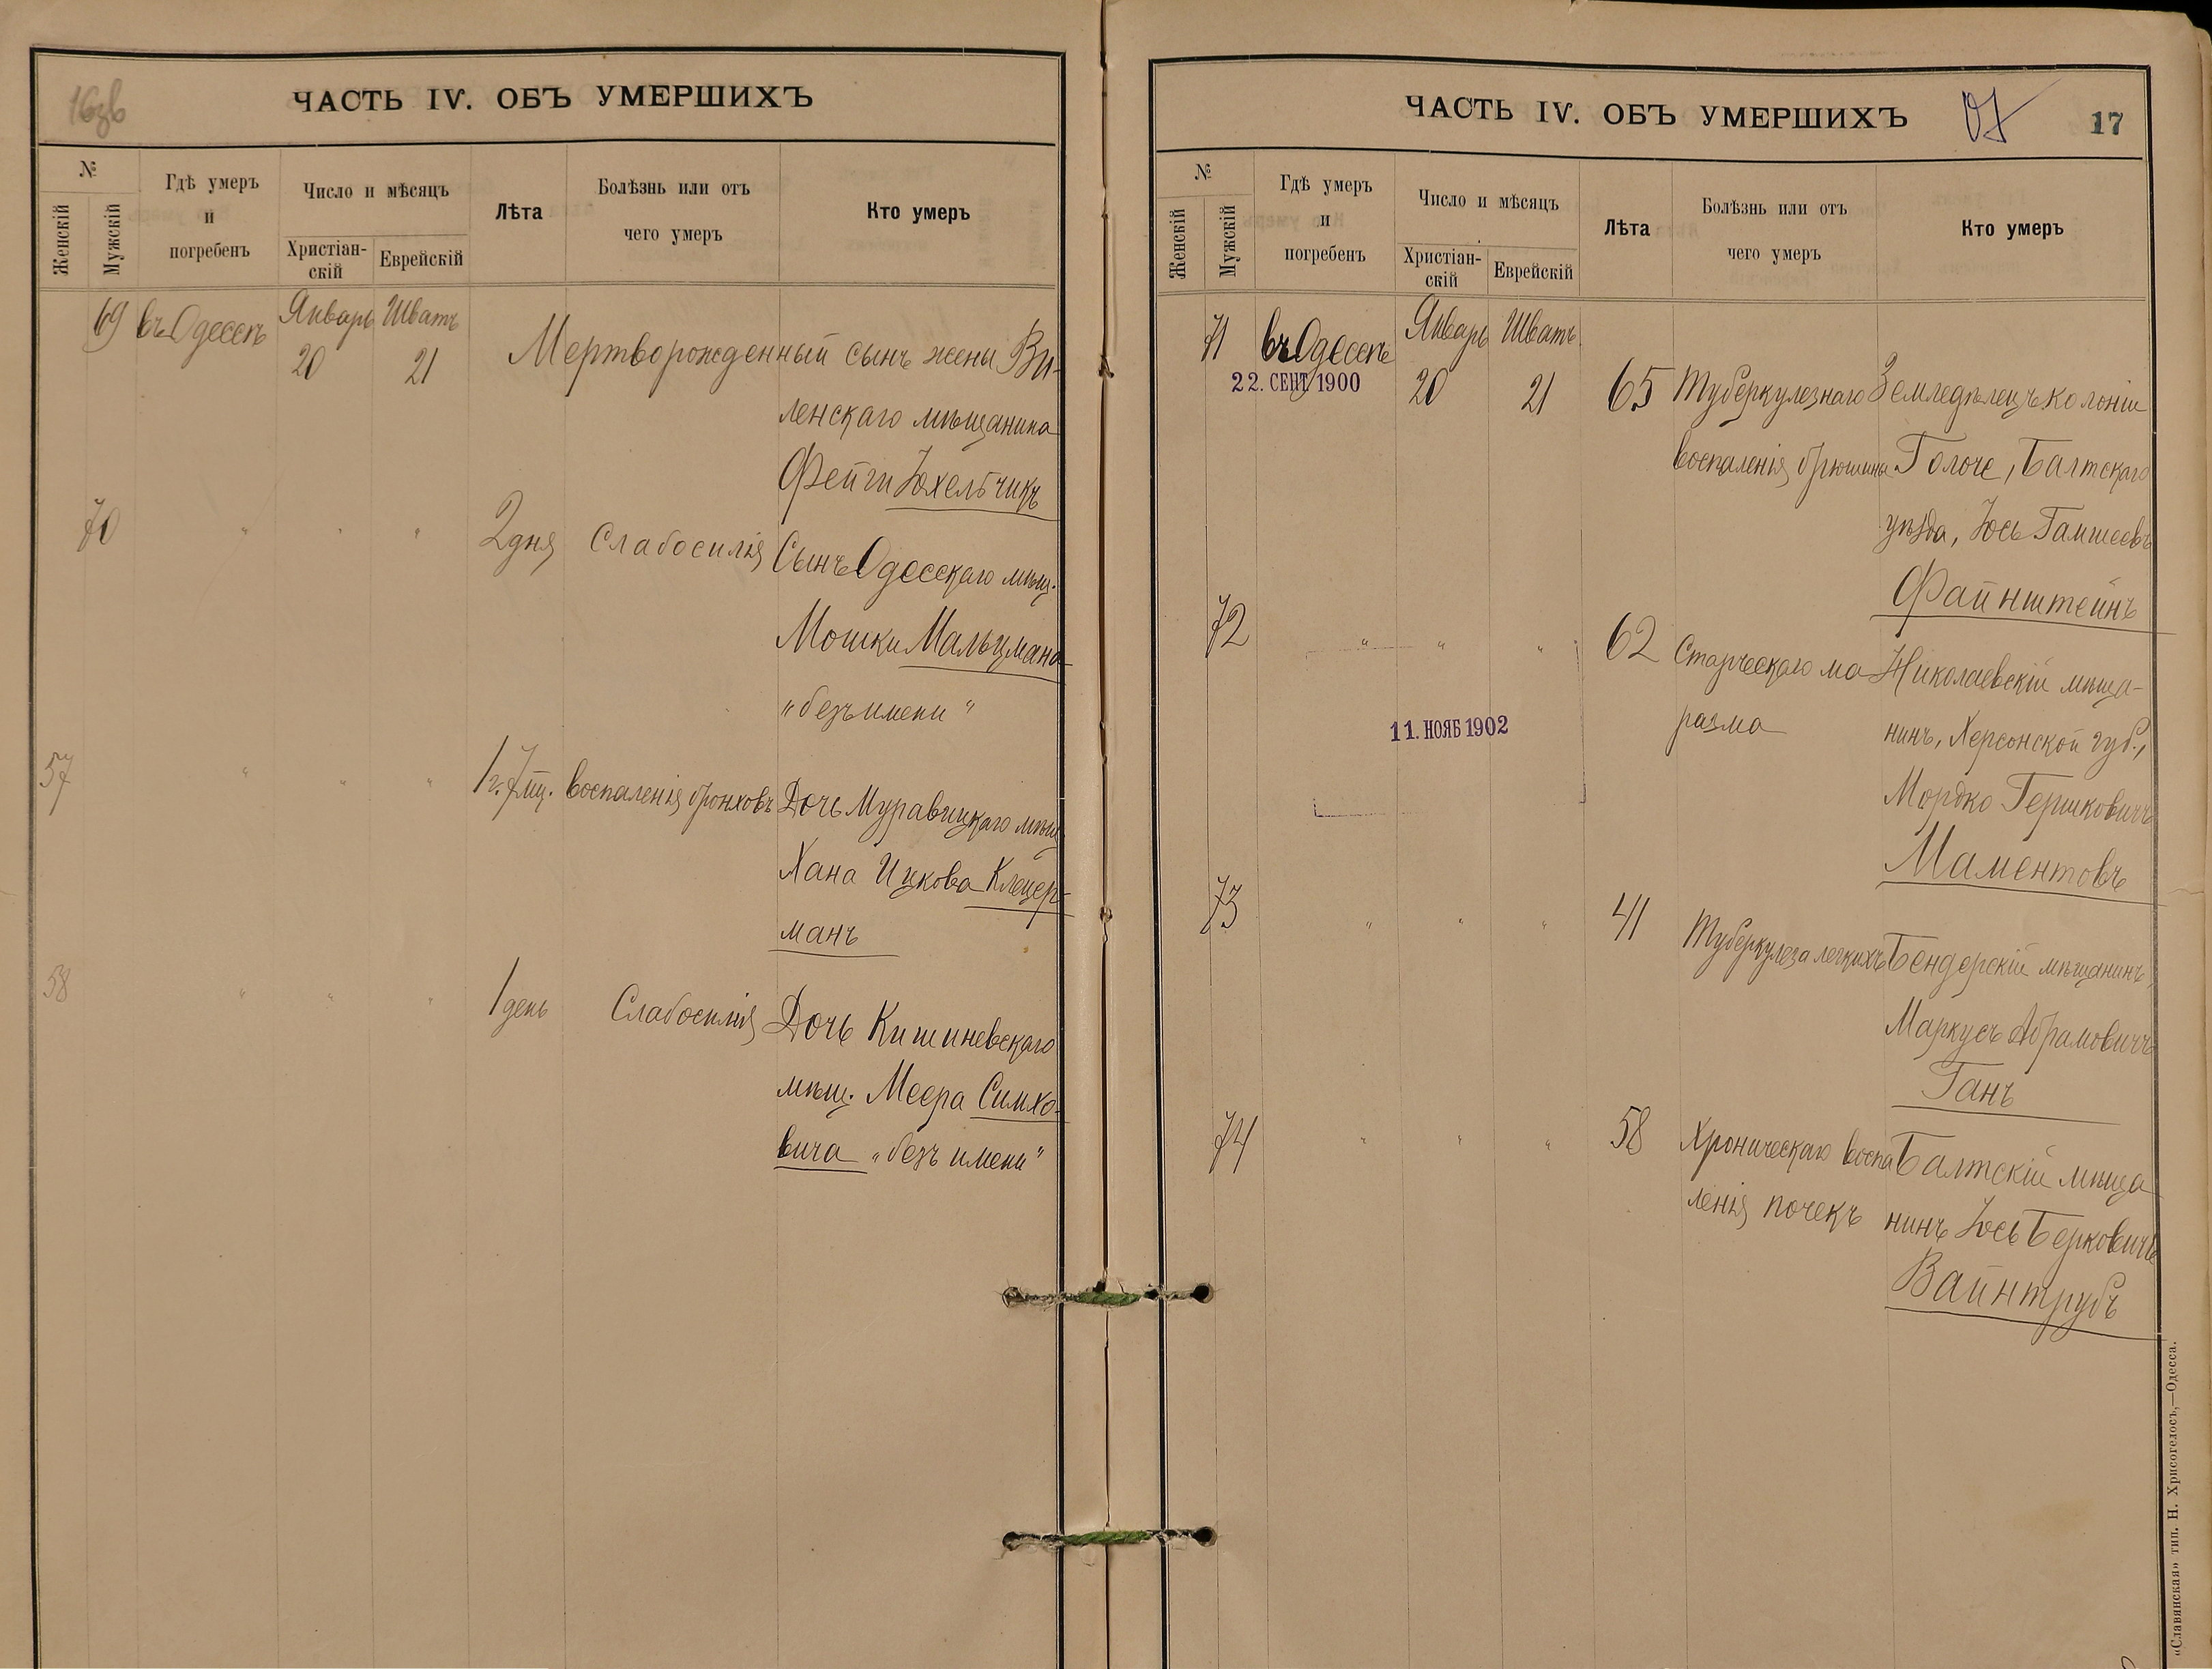 16зв
ЧАСТЬ IV. ОБЪ УМЕРШИХЪ
№
Женскій
Мужскій
Гдѣ умеръ
и
погребенъ
Число и мѣсяцъ
Христіан-
скій
Еврейскій
Лѣта
Болѣзнь или отъ
чего умеръ
Кто умеръ
69 въ Одессѣ Январь Шватъ
20 21 Мертворожденный сынъ жены Ви-
ленскаго мѣщанина
Фейги Юхельчикъ
70 " " " 2 дня Слабосилія Сынъ Одесскаго мѣщ.
Мошки Мальцмана
"безъ имени"
57 " " " 1 г. 7 мц. воспаленія бронховъ Дочь Муравицкаго мѣщ
Хана Ицкова Клецер-
манъ
58 " " " 1 день Слабосилія Дочь Кишиневскаго
мѣщ. Меера Симхо-
вича "безъ имени"
ЧАСТЬ IV. ОБЪ УМЕРШИХЪ
17
№
Женскій
Мужскій
Гдѣ умеръ
и
погребенъ
Число и мѣсяцъ
Христіан-
скій
Еврейскій
Лѣта
Болѣзнь или отъ
чего умеръ
Кто умеръ
71 въ Одессѣ Январь Шватъ
22. СЕНТ. 1900
20 21 65 Туберкулезнаго Земледѣлецъ колоніи
воспаленія брюшины Голоче, Балтскаго
уѣзда, Іось Гамшеевъ
Файнштейнъ
72 " " " 62 Старческаго ма Николаевскій мѣща-
разма нинъ, Херсонской губ.,
11. НОЯБ 1902
Мордко Гершковичъ
Маментовъ
73 " " " 41 Туберкулеза легкихъ Бендерскій мѣщанинъ,
Маркусъ Абрамовичъ
Ганъ
74 " " " 58 Хроническаго воспа Балтскій мѣща
ленія почекъ нинъ Іось Берковичъ
Вайнтрубъ
«Славянская» тип. Н. Хрисогелосъ,—Одесса.